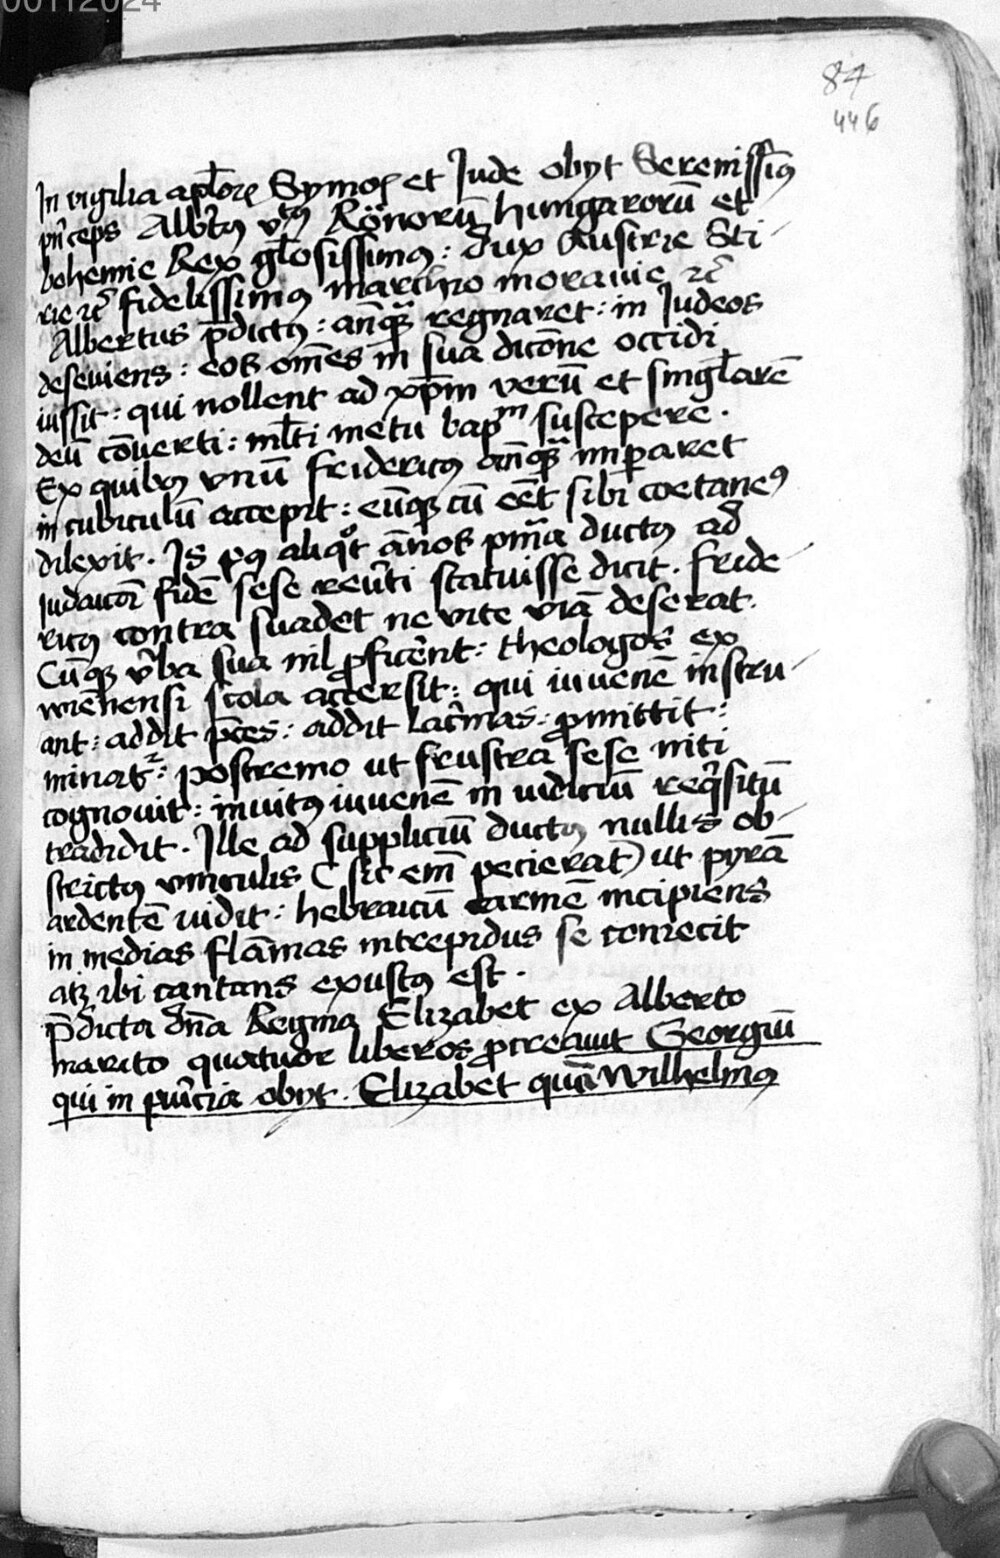 00112024
84
446
In vigilia aploꝝ Symoꝭ et Jude obyt Serenissīꝯ
prīceps Albtꝯ vtꝯ Rōnorū hungarorū et
bohemie Rex gl̄osissimꝯ : dux Austrie Sti-
rie ⁊c̄ fidelissimꝯ marchio moravie ⁊c̄
Albertus p̄dictꝯ : anqꝫ regnaret : in Judeos
deseviens : eos om̄es in sua dicōne occidi
iussit : qui nollent ad xp̄m verū et singl̄arē
deū cōverti : ml̄ti metu bapm suscepere .
Ex quibꝯ vnū fridericꝯ anqꝫ imꝑaret
in cubiculū accepit : eūqꝫ cū eēt sibi coetaneꝯ
dilexit . Is pꝰ aliqͦt ānos pn̄ia ductꝯ ad
Judaicā fidē sese rev̄ti statuisse dicit . fride-
ricꝯ contra suadet ne vite viā deserat .
Cūqꝫ v̄ba sua nil ꝓficēnt : theologos ex
wiēnensi scola accersit : qui iuvenē instru-
ant : addit p̄ces : addit lacr̄mas : ꝓmittit :
minat᷑ : postremo ut frustra sese niti
cognovit : invitꝯ iuvenē in iudiciū reqͥsitū
tradidit . Ille ad suppliciū ductꝯ nullis ob-
strictꝯ vinculis ( sic em̄ pecierat ) ut pyrā
ardentē vidit : hebraicū carmē incipiens
in medias flāmas intrepidus se coniecit
atqꝫ ibi cantans exustꝯ est .
p̄dicta dn̄a Regina Elizabet ex Alberto
marito quatuor liberos ꝓcreavit Georgiū
qui in puīcia obyt . Elizabet quā Wilhelmꝯ